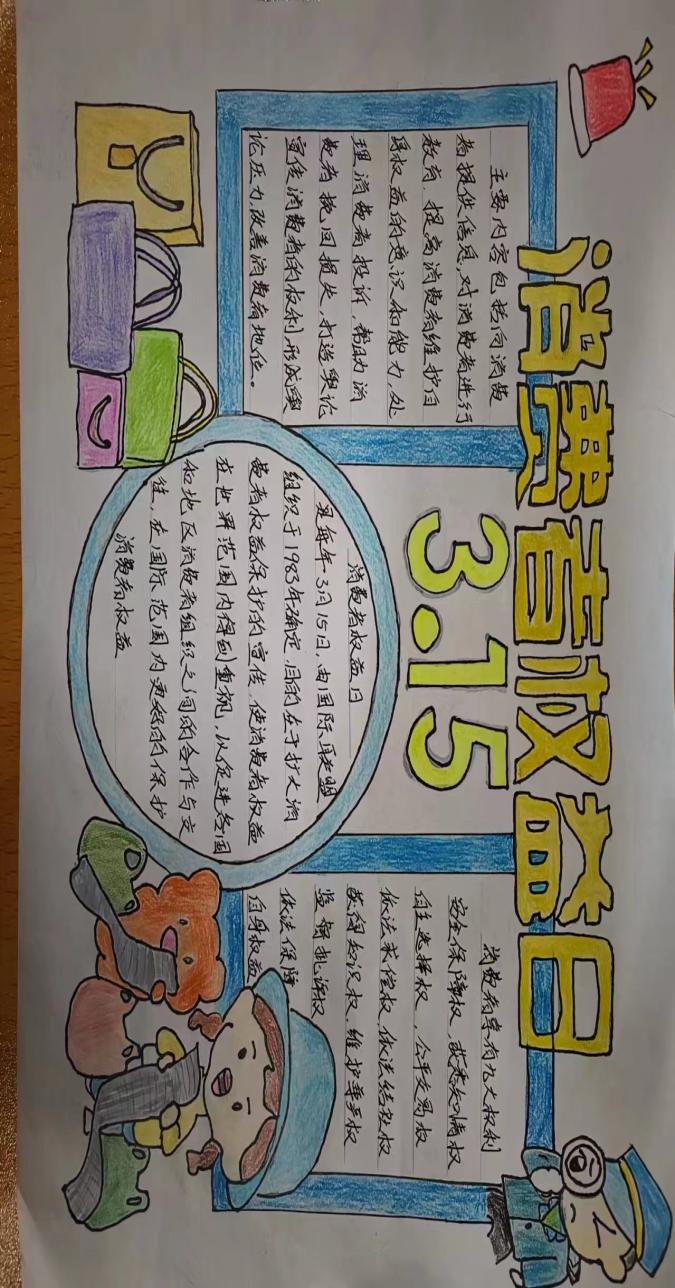 消费者权益日
3.15
主要内容包括向消费
者提供信息,对消费者进行
教育,提高消费者维护自
身权益的意识和能力,处
理消费者投诉,帮助消
费者挽回损失,打造舆论
宣传消费者的权利,形成舆
论压力,改善消费者地位。
消费者权益日
是每年3月15日,由国际联盟
组织于1983年确定,目的在于扩大消
费者权益保护的宣传,使消费者权益
在世界范围内得到重视,以促进各国
和地区消费者组织之间的合作与交
往,在国际范围内更好的保护
消费者权益
消费者享有九大权利
安全保障权,获悉知情权
自主选择权,公平交易权
依法求偿权,依法结社权
获得知识权,维护尊严权
监督批评权
依法保障
自身权益